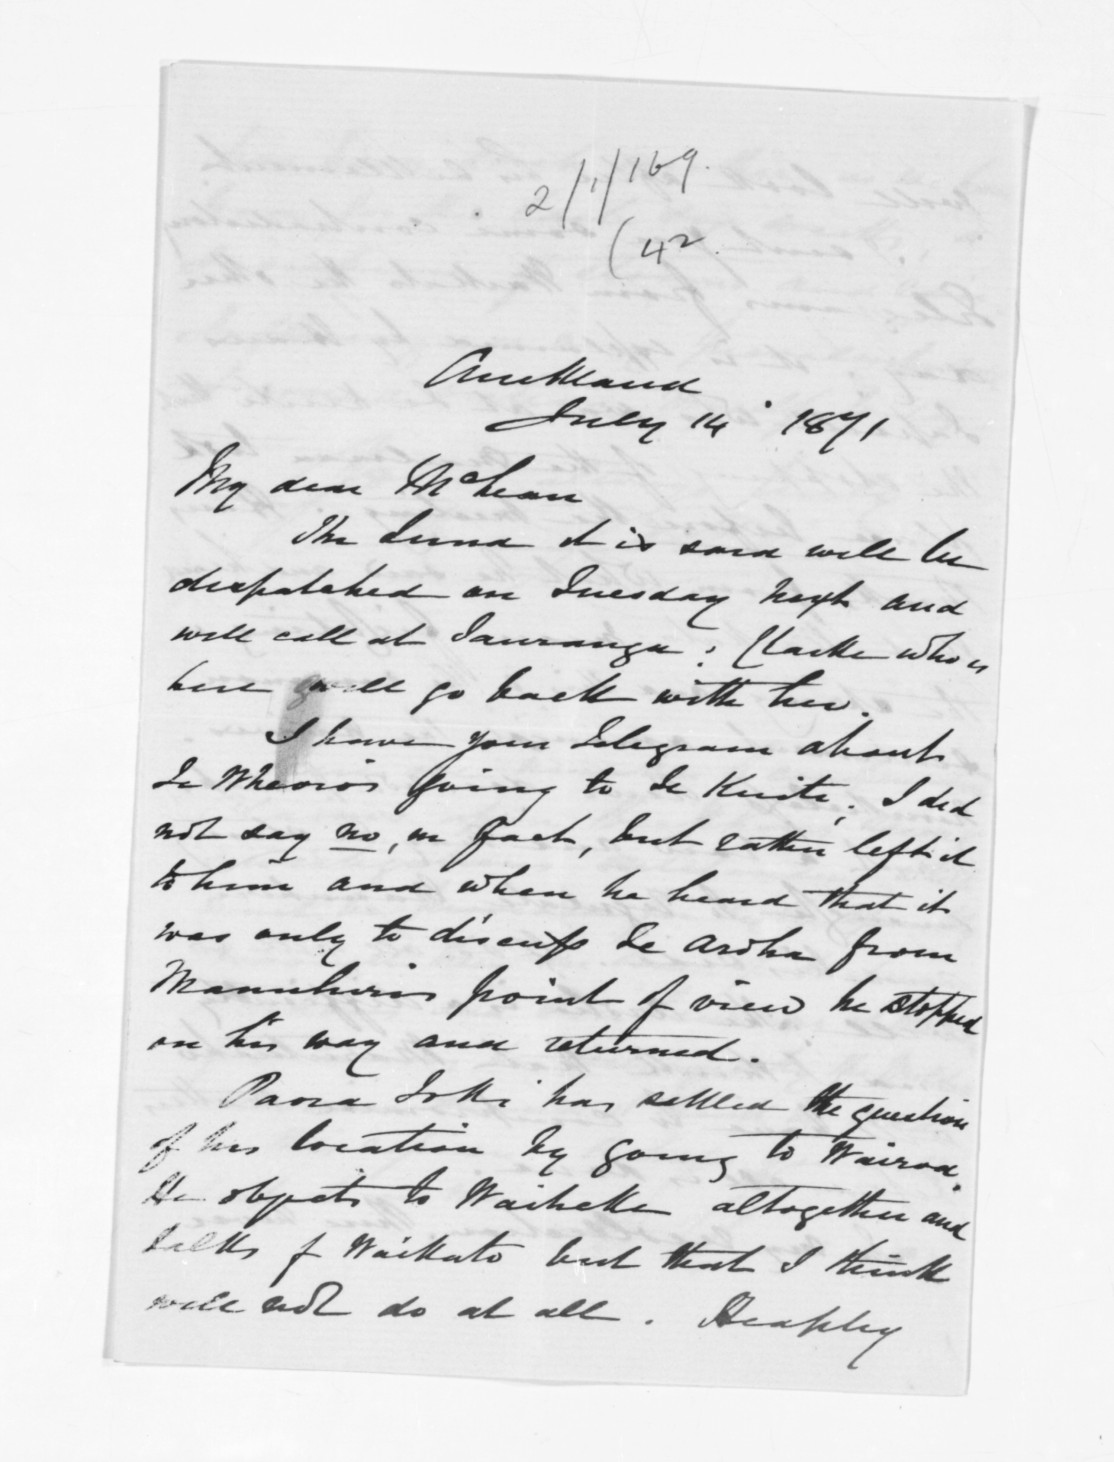 2/1/169.
(42.
Auckland
July 14 1871
My dear McLean
The Luna it is said will be
dispatched on Tuesday next and
will call at Tauranga; Clarke who is
here will go back with her.
I have your Telegram about
Te Wheoro's going to Te Kuiti; I did
not say no, in fact, but rather left it
to him and when he heard that it
was only to discuss Te Aroha from
Manuhiris point of view he stopped
on his way and returned.
Paora Toki has settled the question
of his location by going to Wairoa.
He objects to Waiheke altogether and
talks of Waikato but that I think
will not do at all. Heaphy